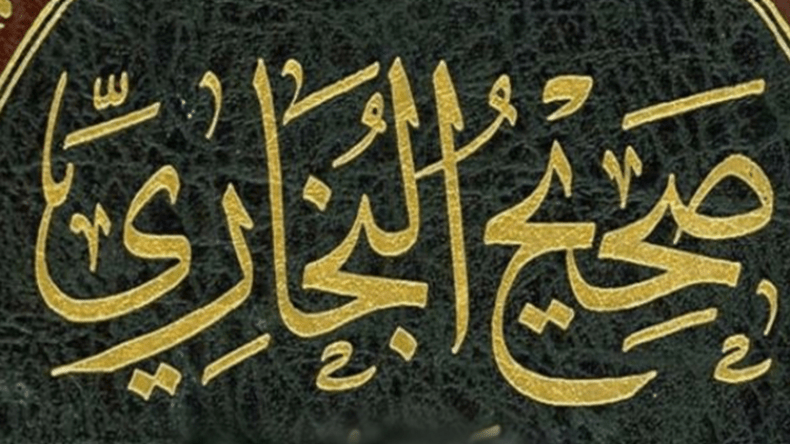 صَحِيْحُ البُخَارِيّ